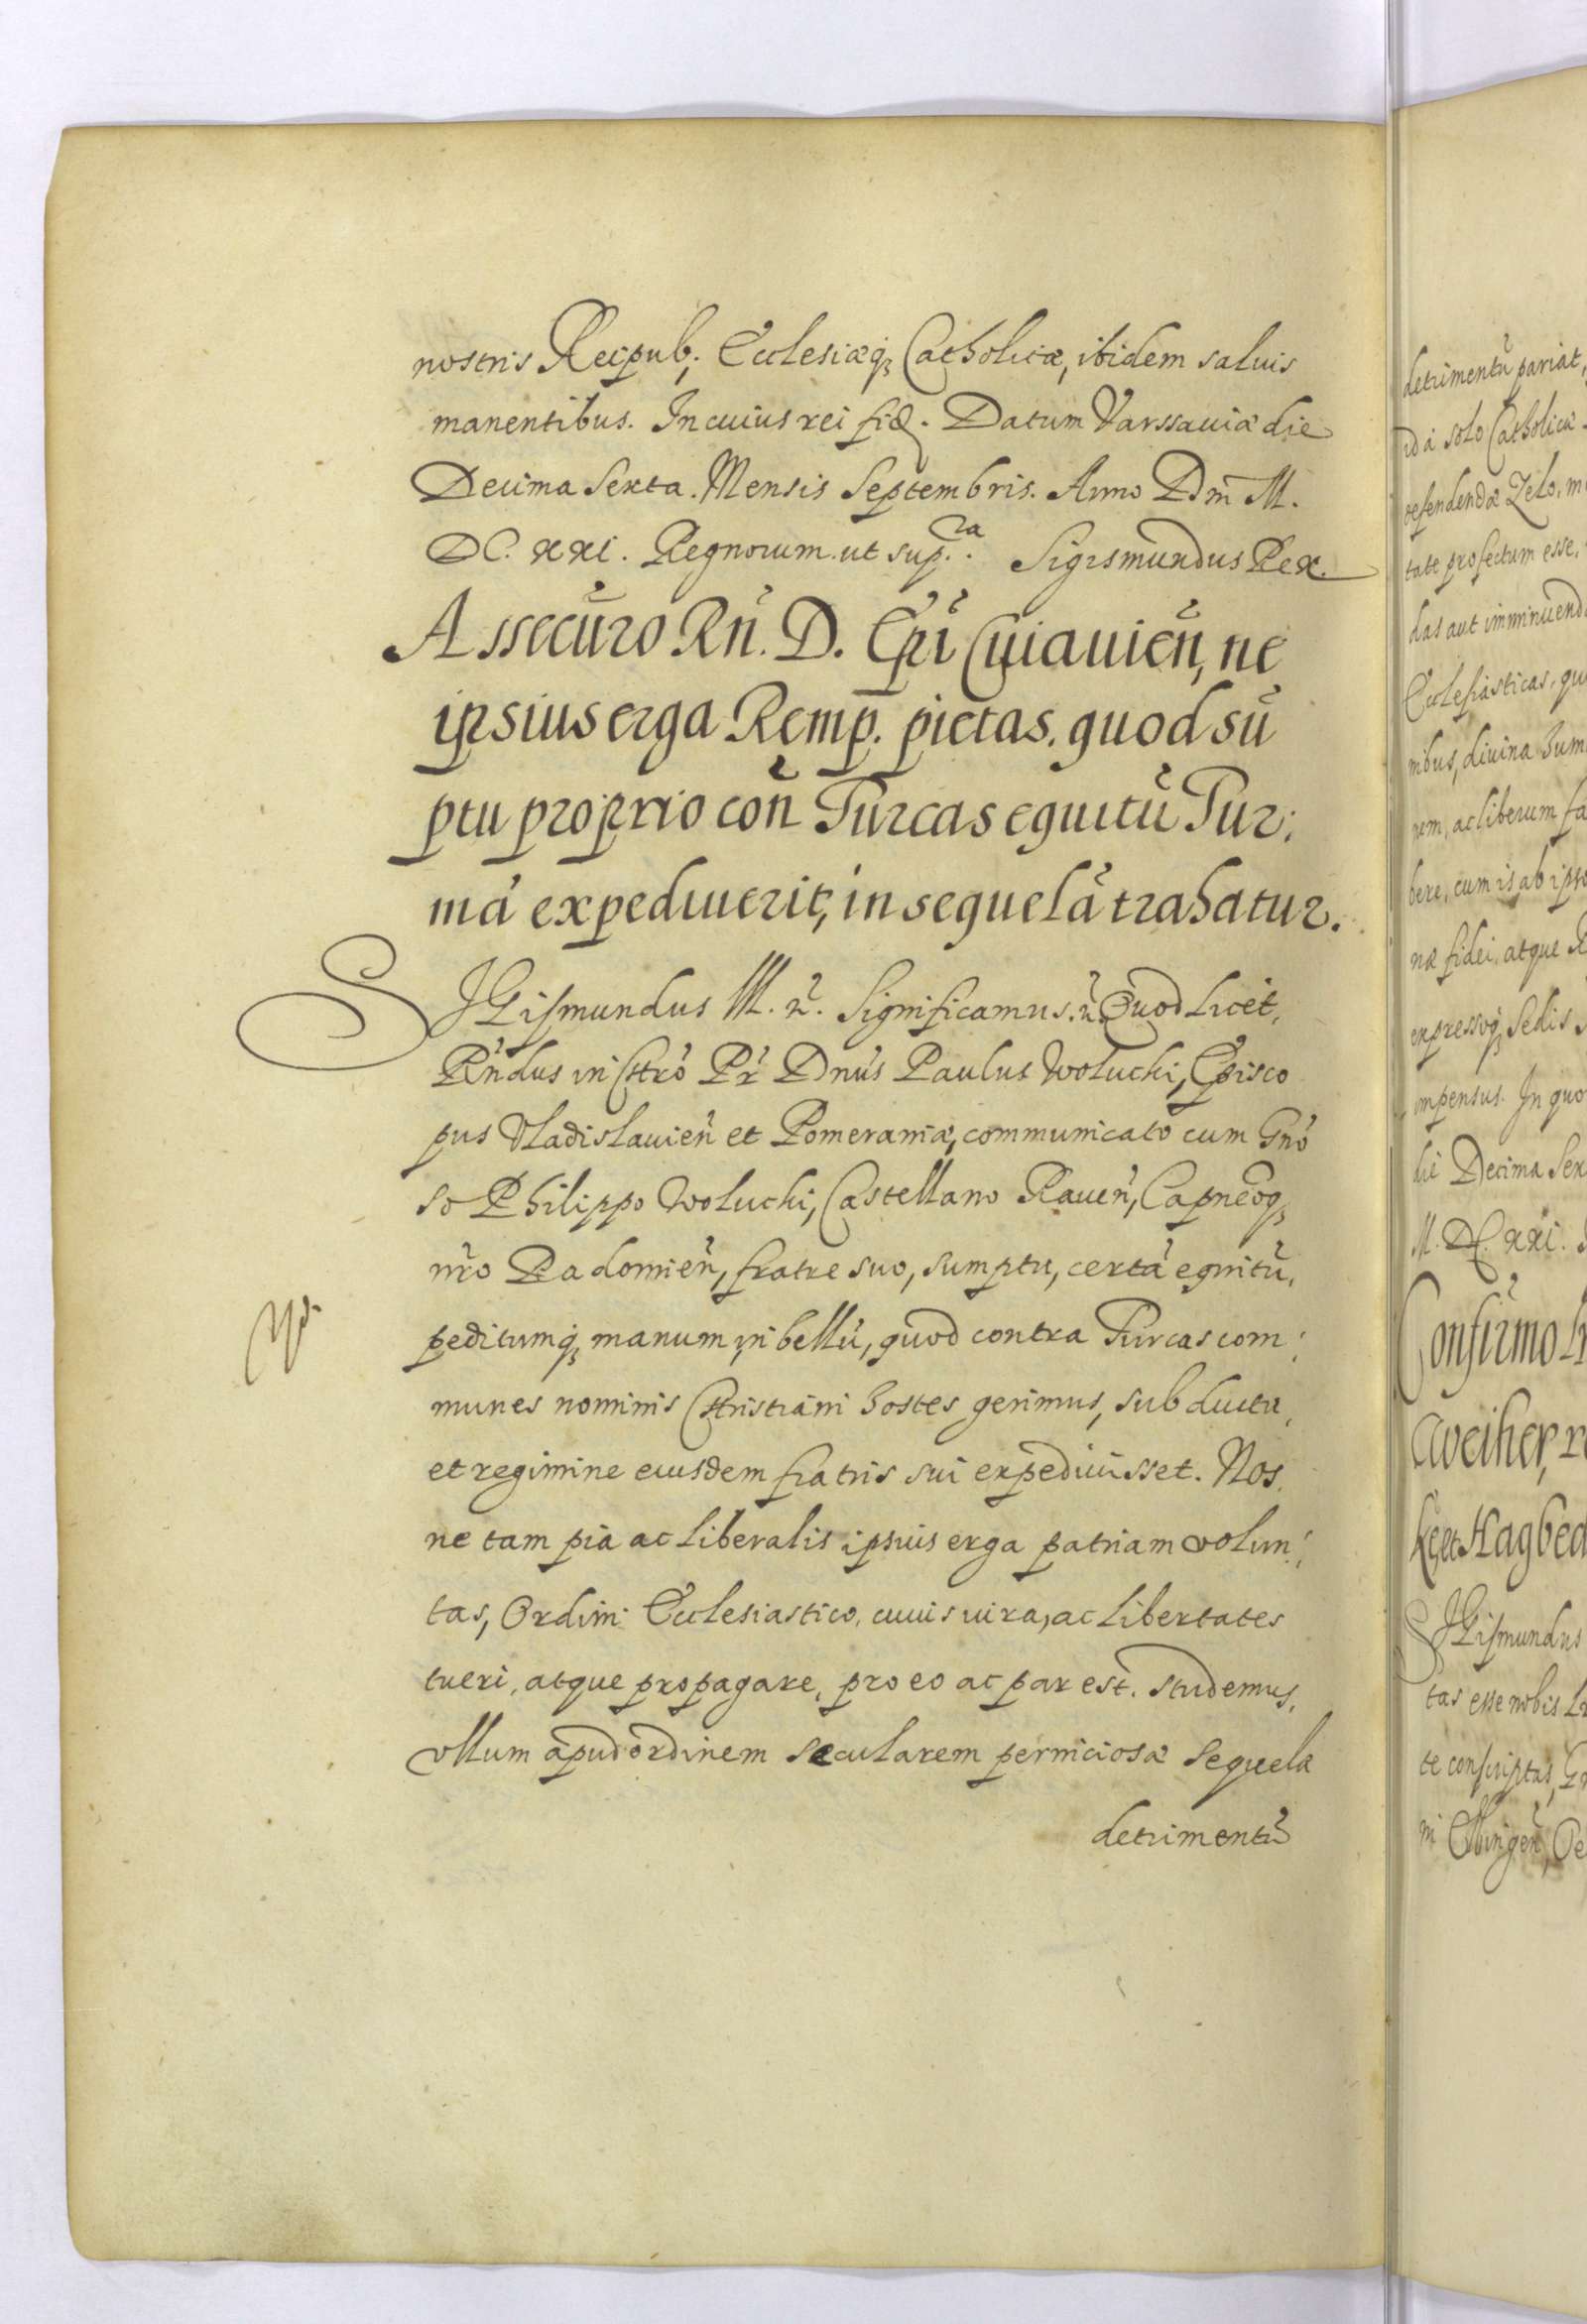 nostris Reipub; Ecclesiæq; Catholicæ, ibidem saluis
manentibus. In cuius rei fid. Datum Varssauiæ die
Decima Sexta. Mensis Septembris. Anno Dm̃ M.
DC. XXI. Regnorum ut sup.ra Sigismundus Rex.
Assecũro Rñ. D. Epĩ Cuiauieñ, ne
ipsius erga Remp. pietas. quod sũ
ptu proprio coñ Turcas equitũ Tur:
má expediuerit, in sequelã trahatur.
SIGismundus III. ñ. Significamus. ñ. Quod licet,
Rñdus in Chrõ Pr̃ Dnũs Paulus Woluchi, Episco
pus Vladislauieñ et Pomeraniæ, communicato cum Gnõ
so Philippo Woluchi, Castellano Raueñ, Capneoq;
nr̃o Radomieñ, fratre suo, sumptu, certã equitũ,
peditumq; manum, in bellũ, quod contra Turcas com:
munes nominis Christiani hostes gerimus, sub ductu,
et regimine eiusdem fratris sui expediuisset. Nos,
ne tam pia ac liberalis ipsius erga patriam volun:
tas, Ordini Ecclesiastico, cuius iura, ac libertates
tueri, atque propagare, pro eo ac par est. studemus,
vllum apud ordinem secularem perniciosæ sequelæ
detrimentũ
detrimentũ pariat,
id à solo Catholicæ
defendendæ Zelo,
tate profectum esse,
das aut imminuend
Ecclesiasticas, qu
nibus, diuina hum
rem, ac liberum fa
bere, cum is ab ipso
næ fidei, atque R
expressoq; Sedis
impensus. In quo
die Decima Sex
M. DC. XXI.
Confirmo
Weiher,
et Hagbed
SIGismundus
tas esse nobis
te conscriptas,